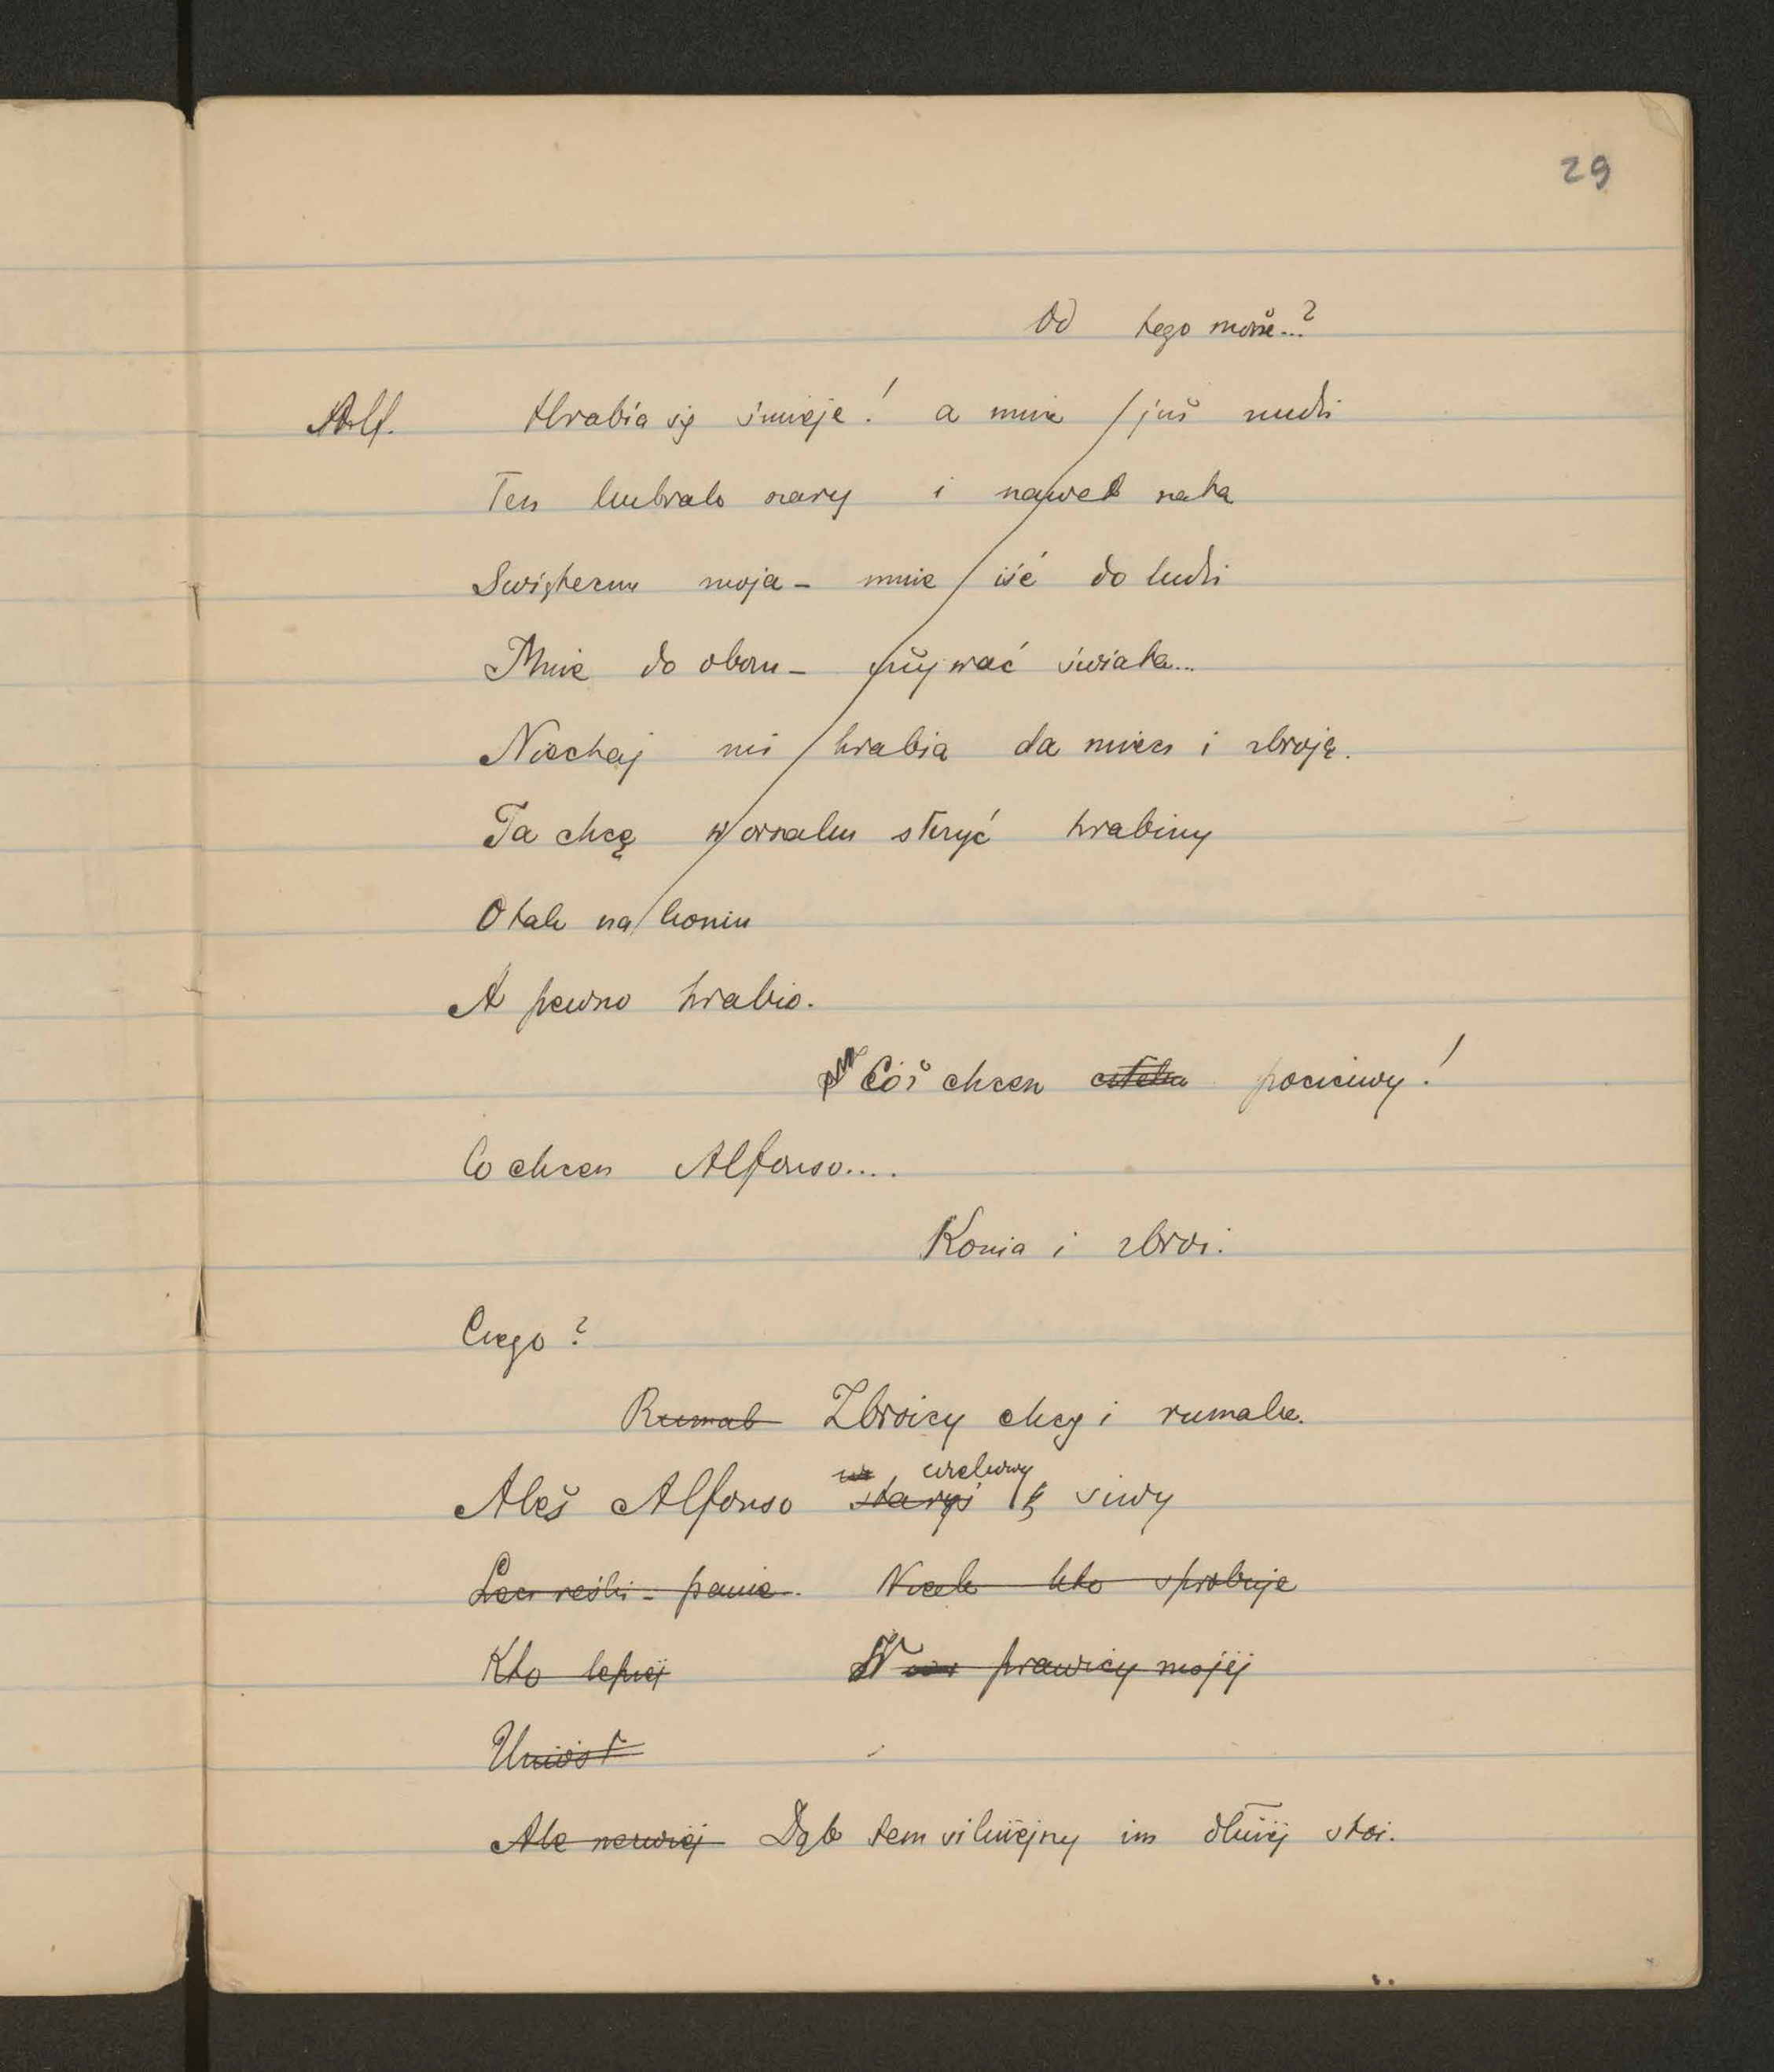 29
Od tego może...?
Alf. Hrabia się śmieje! a mnie już nudzi
Ten kubrak szary i nawet szata
Swiąteczna moja – mnie iść do ludzi
Mnie do obozu – zużywać świata...
Niechaj mi hrabia da miecz i zbroję.
Ja chcę w orszaku służyć hrabiny
Otak na koniu
A pewno hrabio.
Cóż chcesz człeku poczciwy!
Co chcesz Alfonso....
Konia i zbroi.
Czego?
Rumak Zbroicy chcę i rumaka.
Aleś Alfonso staryś siwy
Lecz rześki – panie. Niech kto sprobuje
Kto lepiej W prawicy mojéj
Uniósł
Ale nerwiéj Dąb tem silniejszy im dłużéj stoi.